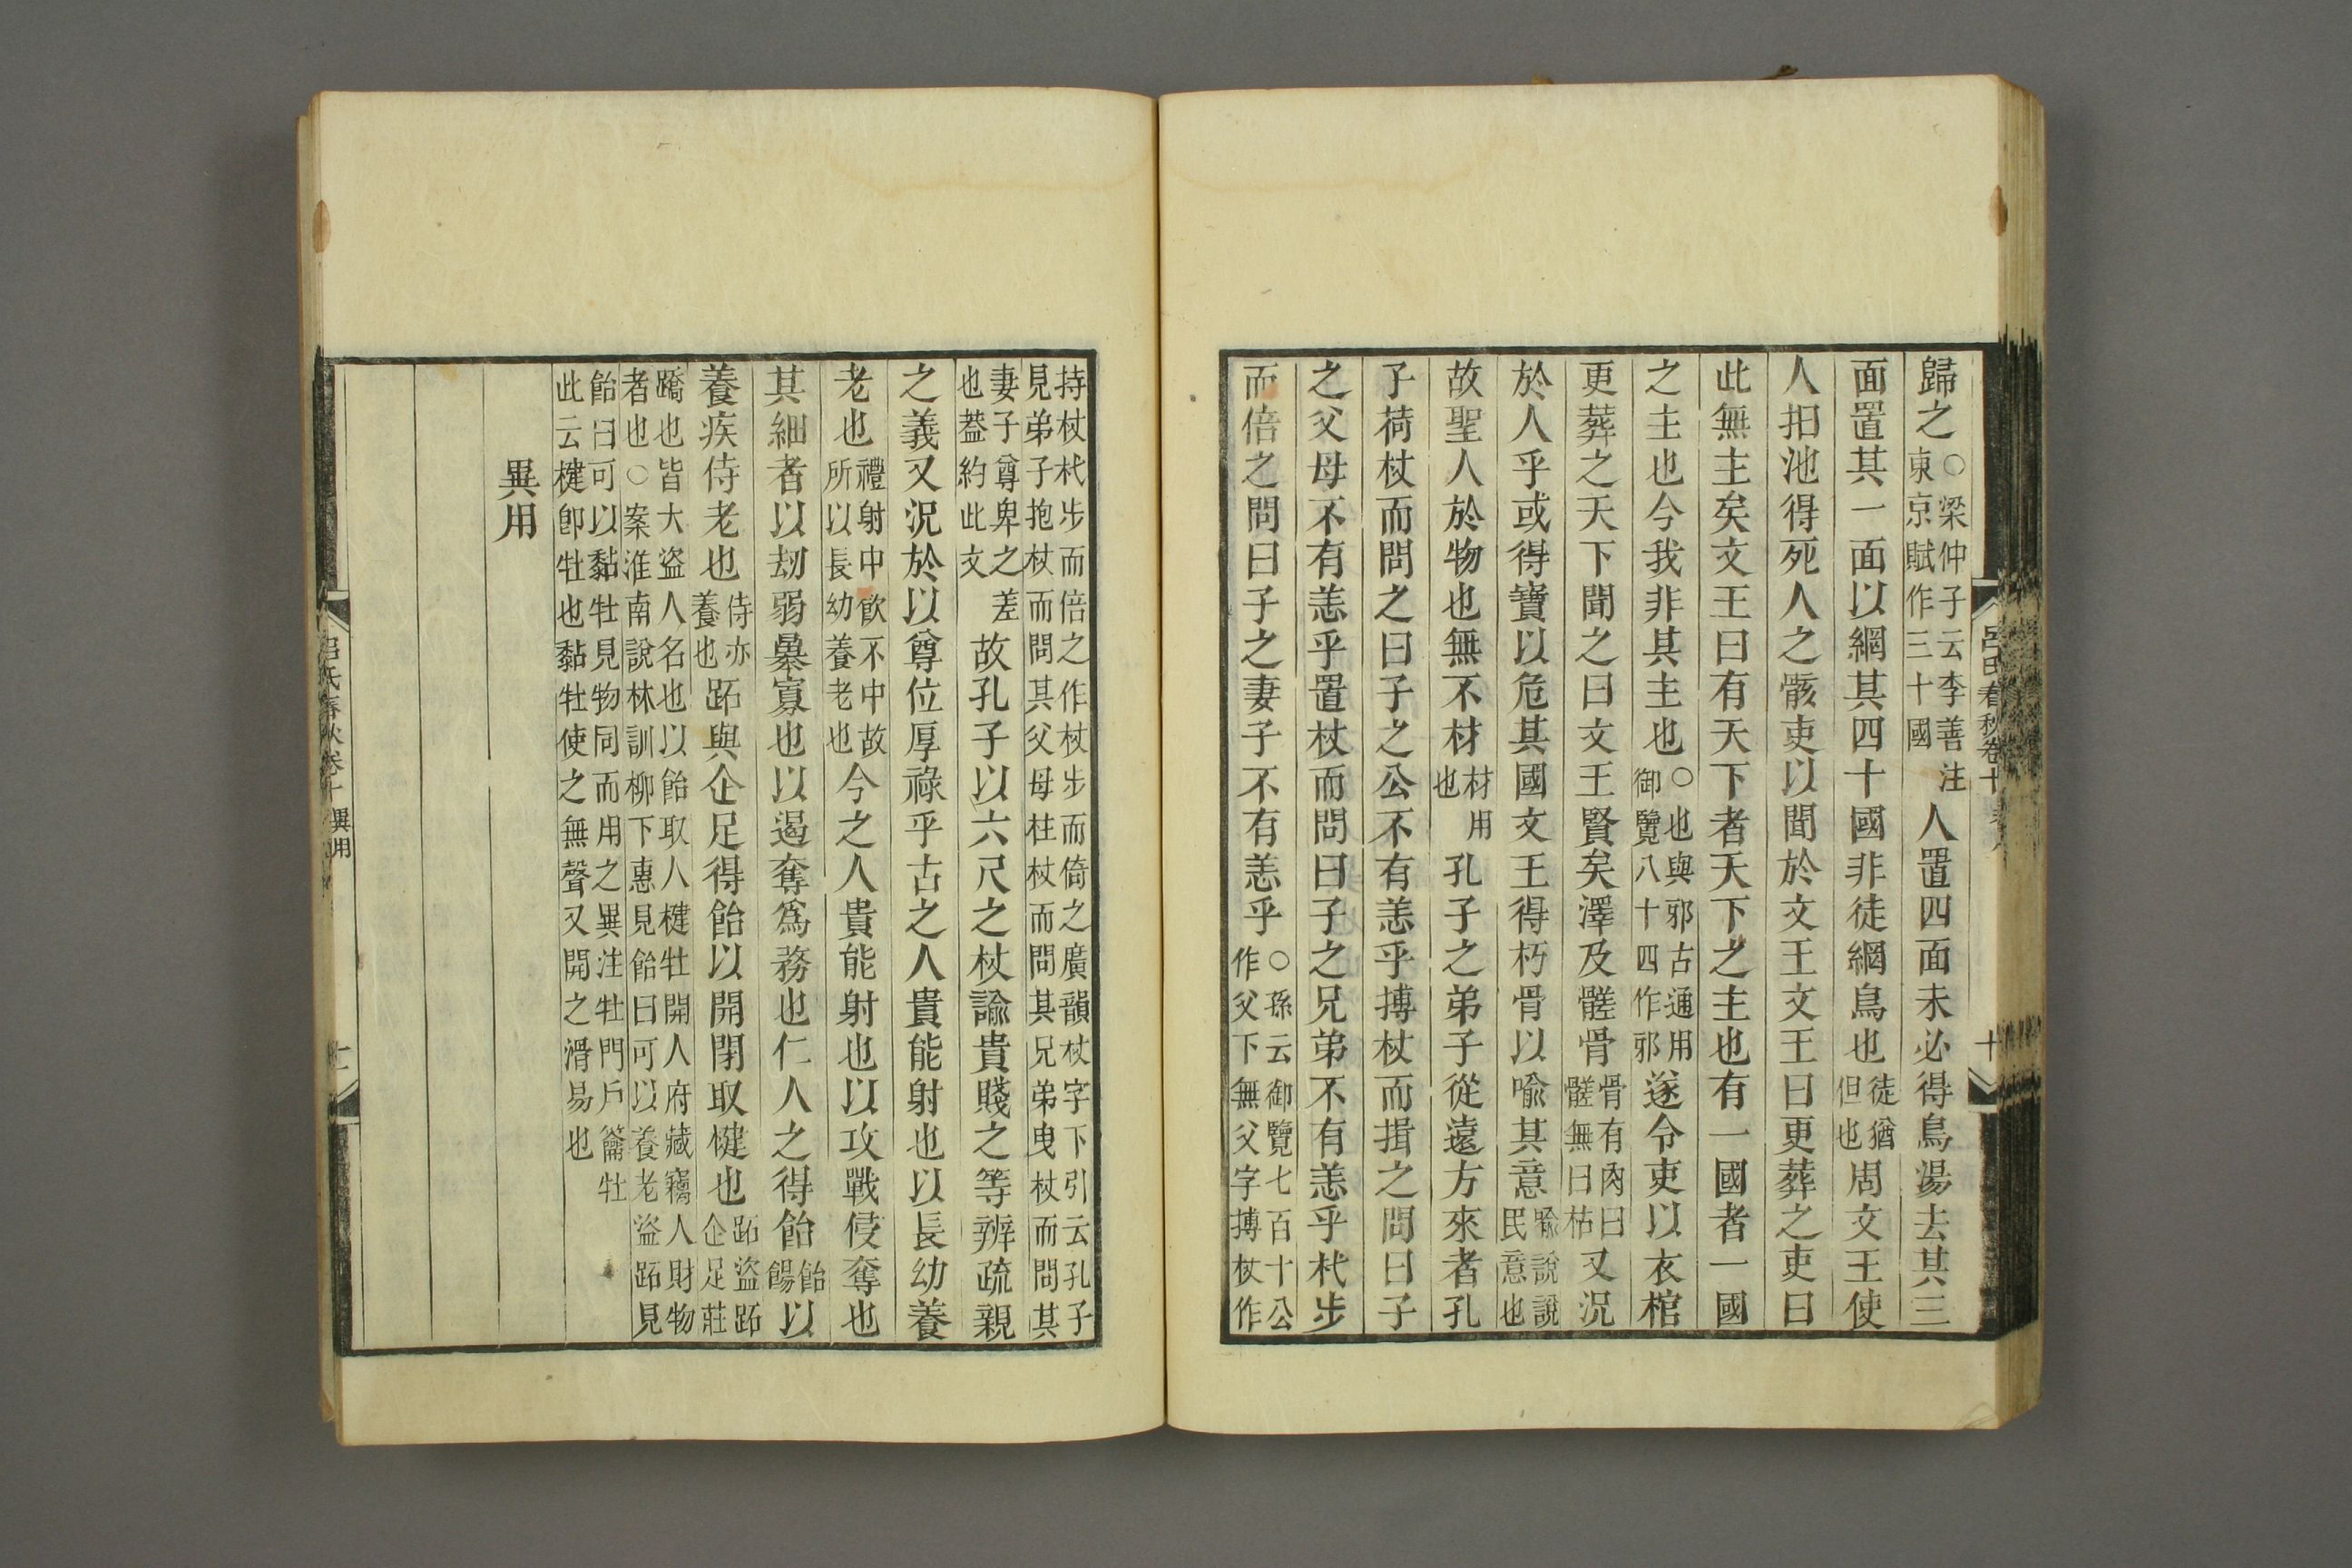 歸之○梁仲子云李善注東京賦作三十國人置四面未必得鳥湯去其三
面置其一面以網其四十國非徒網鳥也徒猶但也周文王使
人抇池得死人之骸吏以聞於文王文王曰更葬之吏曰
此無主矣文王曰有天下者天下之主也有一國者一國
之主也今我非其主也○也與邪古通用御覽八十四作邪遂令吏以衣棺
更葬之天下聞之曰文王賢矣澤及髊骨骨有肉曰髊無曰枯又況
於人乎或得寶以危其國文王得朽骨以喻其意喻說說民意也
故聖人於物也無不材材用也孔子之弟子從遠方來者孔
子荷杖而問之曰子之公不有恙乎搏杖而揖之問曰子
之父母不有恙乎置杖而問曰子之兄弟不有恙乎杙步
而倍之問曰子之妻子不有恙乎○孫云御覽七百十公作父下無父字搏杖作
持杖杙步而倍之作杖步而倚之廣韻杖字下引云孔子見弟子抱杖而問其父母柱杖而問其兄弟曳杖而問其
妻子尊卑之差也葢約此文故孔子以六尺之杖諭貴賤之等辨疏親
之義又況於以尊位厚祿乎古之人貴能射也以長幼養
老也禮射中飲不中故所以長幼養老也今之人貴能射也以攻戰侵奪也
其細者以劫弱暴寡也以遏奪爲務也仁人之得飴飴餳以
養疾侍老也侍亦養也跖與企足得飴以開閉取楗也跖盜跖企足莊
蹻也皆大盜人名也以飴取人楗牡開人府藏竊人財物者也○案淮南說林訓柳下惠見飴曰可以養老盜跖見
飴曰可以黏牡見物同而用之異注牡門戶籥牡此云楗卽牡也黏牡使之無聲又開之滑易也
異用
呂氏春秋卷十
十
呂氏春秋卷十 異用